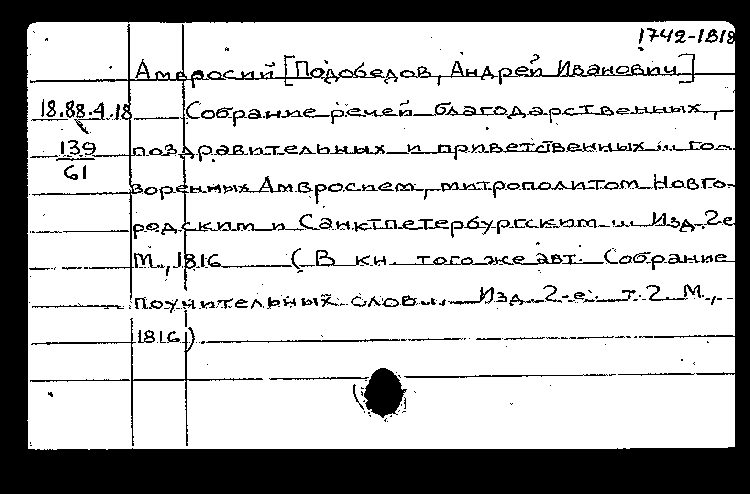 1742-1818
Амвросий [Подобедов, Андрей Иванович]
18.88.4.18 Собрание речей благодарственных,
139 поздравительных и приветственных ... го-
61
воренных Амвросием, митрополитом Новго-
родским и Санктпетербургским ... Изд. 2е
М., 1816 (В кн. того же авт. Собрание
поучительных слов ... Изд. 2-е. т. 2. М.,
1816).